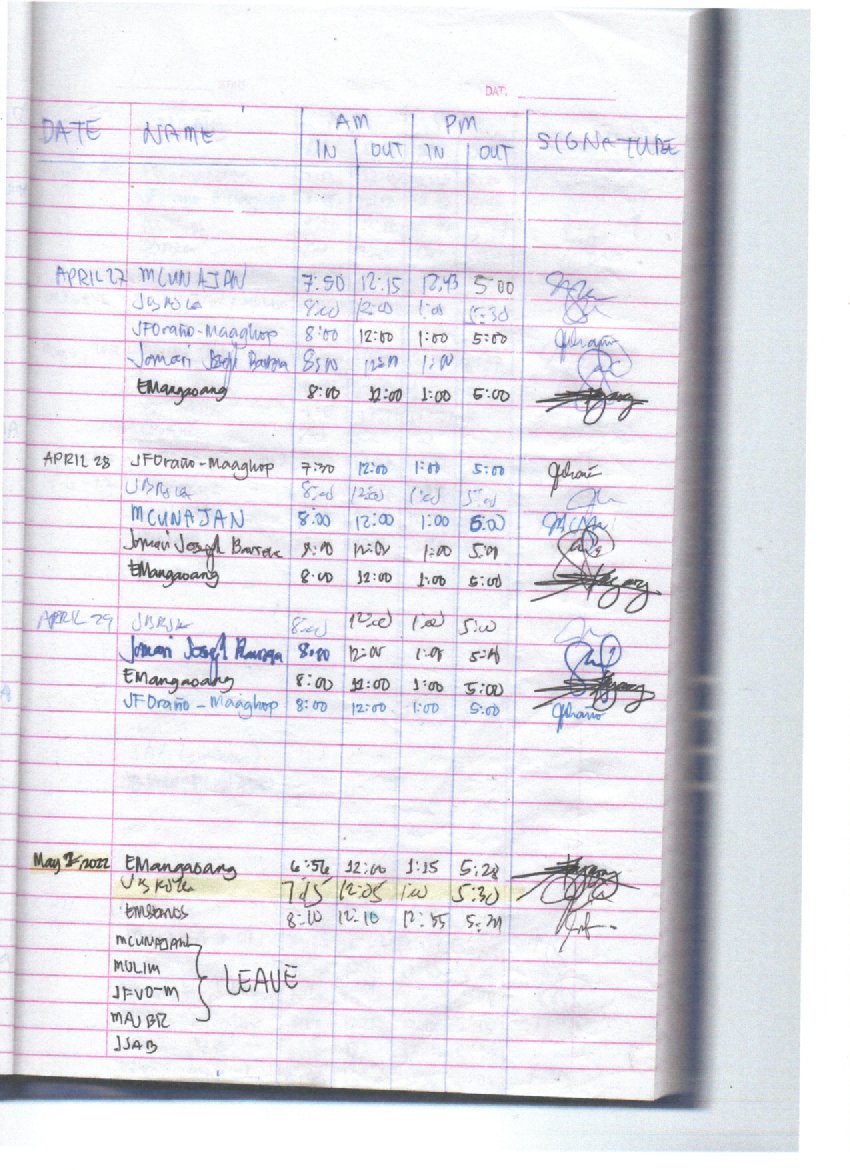 DAT.
AM PM
DATE NAME IN OUT IN OUT SIGNATURE
APRIL 27 MCUNAJAN 7:50 12:15 12:43 5:00
8:00 12:00 1:00 5:30
JFOraño-Maaghop 8:00 12:00 1:00 5:00
Jomari 8:00 1:00
EMangaoang 8:00 12:00 1:00 5:00
APRIL 28 JFOraño-Maaghop 7:30 12:00 1:00 5:00
8:00 12:00 1:00 5:00
MCUNAJAN 8:00 12:00 1:00 5:00
Jomari Joseph 8:00 12:00 1:00 5:00
EMangaoang 8:00 12:00 1:00 5:00
APRIL 29 8:00 12:00 1:00 5:00
Jomari Joseph 8:00 12:00 1:00 5:00
EMangaoang 8:00 12:00 1:00 5:00
JFOraño-Maaghop 8:00 12:00 1:00 5:00
May 2, 2022 EMangaoang 6:56 12:00 1:15 5:28
7:15 12:05 1:00 5:30
8:10 12:10 12:55
MCUNAJAN
MULIM
JFVO-M LEAVE
MAJBR
JJAB